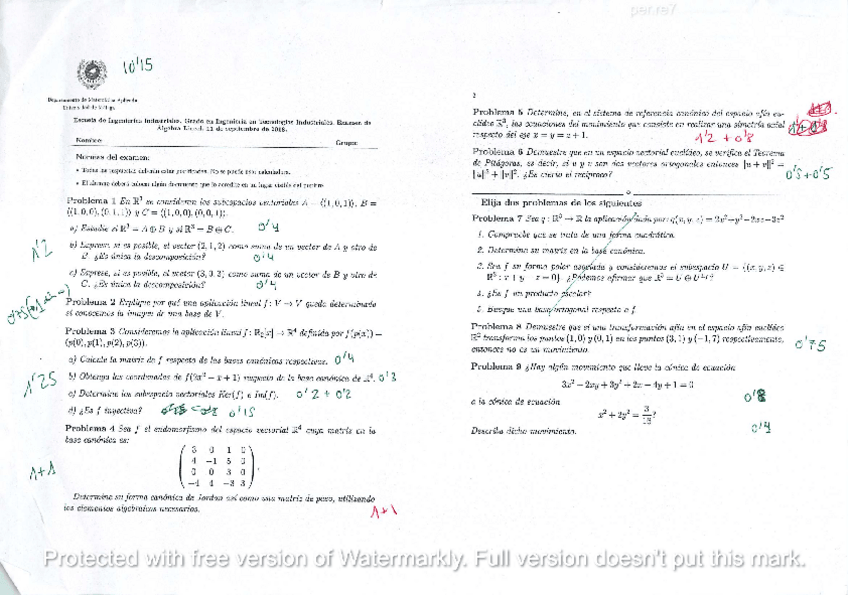 per.re7
10'15
Departamento de Matemática Aplicada
Universidad de Málaga
Escuela de Ingenierías Industriales. Grado en Ingeniería en Tecnologías Industriales. Examen de
Álgebra Lineal. 11 de septiembre de 2018.
Nombre: Grupo:
Normas del examen:
• Todas las respuestas deberán estar justificadas. No se puede usar calculadora.
• El alumno deberá colocar algún documento que lo acredite en un lugar visible del pupitre.
Problema 1 En ℝ³ se consideran los subespacios vectoriales A = ⟨(1,0,1)⟩, B =
⟨(1,0,0),(0,1,1)⟩ y C = ⟨(1,0,0),(0,0,1)⟩.
a) Estudie si ℝ³ = A ⊕ B y si ℝ³ = B ⊕ C. 0'4
1'2
b) Exprese, si es posible, el vector (2,1,2) como suma de un vector de A y otro de
B. ¿Es única la descomposición? 0'4
c) Exprese, si es posible, el vector (3,3,3) como suma de un vector de B y otro de
C. ¿Es única la descomposición? 0'4
0'75
Problema 2 Explique por qué una aplicación lineal f : V → V queda determinada
si conocemos la imagen de una base de V.
Problema 3 Consideremos la aplicación lineal f : ℝ₃[x] → ℝ⁴ definida por f(p(x)) =
(p(0), p(1), p(2), p(3)).
a) Calcule la matriz de f respecto de las bases canónicas respectivas. 0'4
1'25
b) Obtenga las coordenadas de f(2x² − x + 1) respecto de la base canónica de ℝ⁴. 0'3
c) Determine los subespacios vectoriales Ker(f) e Im(f). 0'2 + 0'2
d) ¿Es f inyectiva? 0'15
Problema 4 Sea f el endomorfismo del espacio vectorial ℝ⁴ cuya matriz en la
base canónica es:
3 0 1 0
4 −1 5 0
0 0 3 0
−4 4 −3 3
1+1
Determine su forma canónica de Jordan así como una matriz de paso, utilizando
los elementos algebraicos necesarios.
1+1
2
Problema 5 Determine, en el sistema de referencia canónico del espacio afín eu-
clídeo ℝ³, las ecuaciones del movimiento que consiste en realizar una simetría axial
respecto del eje x = y = z + 1.
1'2 + 0'8
Problema 6 Demuestre que en un espacio vectorial euclídeo, se verifica el Teorema
de Pitágoras, es decir, si u y v son dos vectores ortogonales entonces ‖u + v‖² =
‖u‖² + ‖v‖². ¿Es cierto el recíproco? 0'5+0'5
Elija dos problemas de los siguientes
Problema 7 Sea q : ℝ³ → ℝ la aplicación dada por: q(x, y, z) = 2x²−y²−2xz−3z²
1. Compruebe que se trata de una forma cuadrática.
2. Determine su matriz en la base canónica.
3. Sea f su forma polar asociada y consideremos el subespacio U = {(x, y, z) ∈
ℝ³ : x + y − z = 0}. ¿Podemos afirmar que ℝ³ = U ⊕ U⊥?
4. ¿Es f un producto escalar?
5. Busque una base ortogonal respecto a f
Problema 8 Demuestre que si una transformación afín en el espacio afín euclídeo
ℝ² transforma los puntos (1,0) y (0,1) en los puntos (3,1) y (−1,7) respectivamente,
entonces no es un movimiento. 0'75
Problema 9 ¿Hay algún movimiento que lleve la cónica de ecuación
3x² − 2xy + 3y² + 2x − 4y + 1 = 0
a la cónica de ecuación 0'8
x² + 2y² = 3/16?
Describa dicho movimiento. 0'4
Protected with free version of Watermarkly. Full version doesn't put this mark.